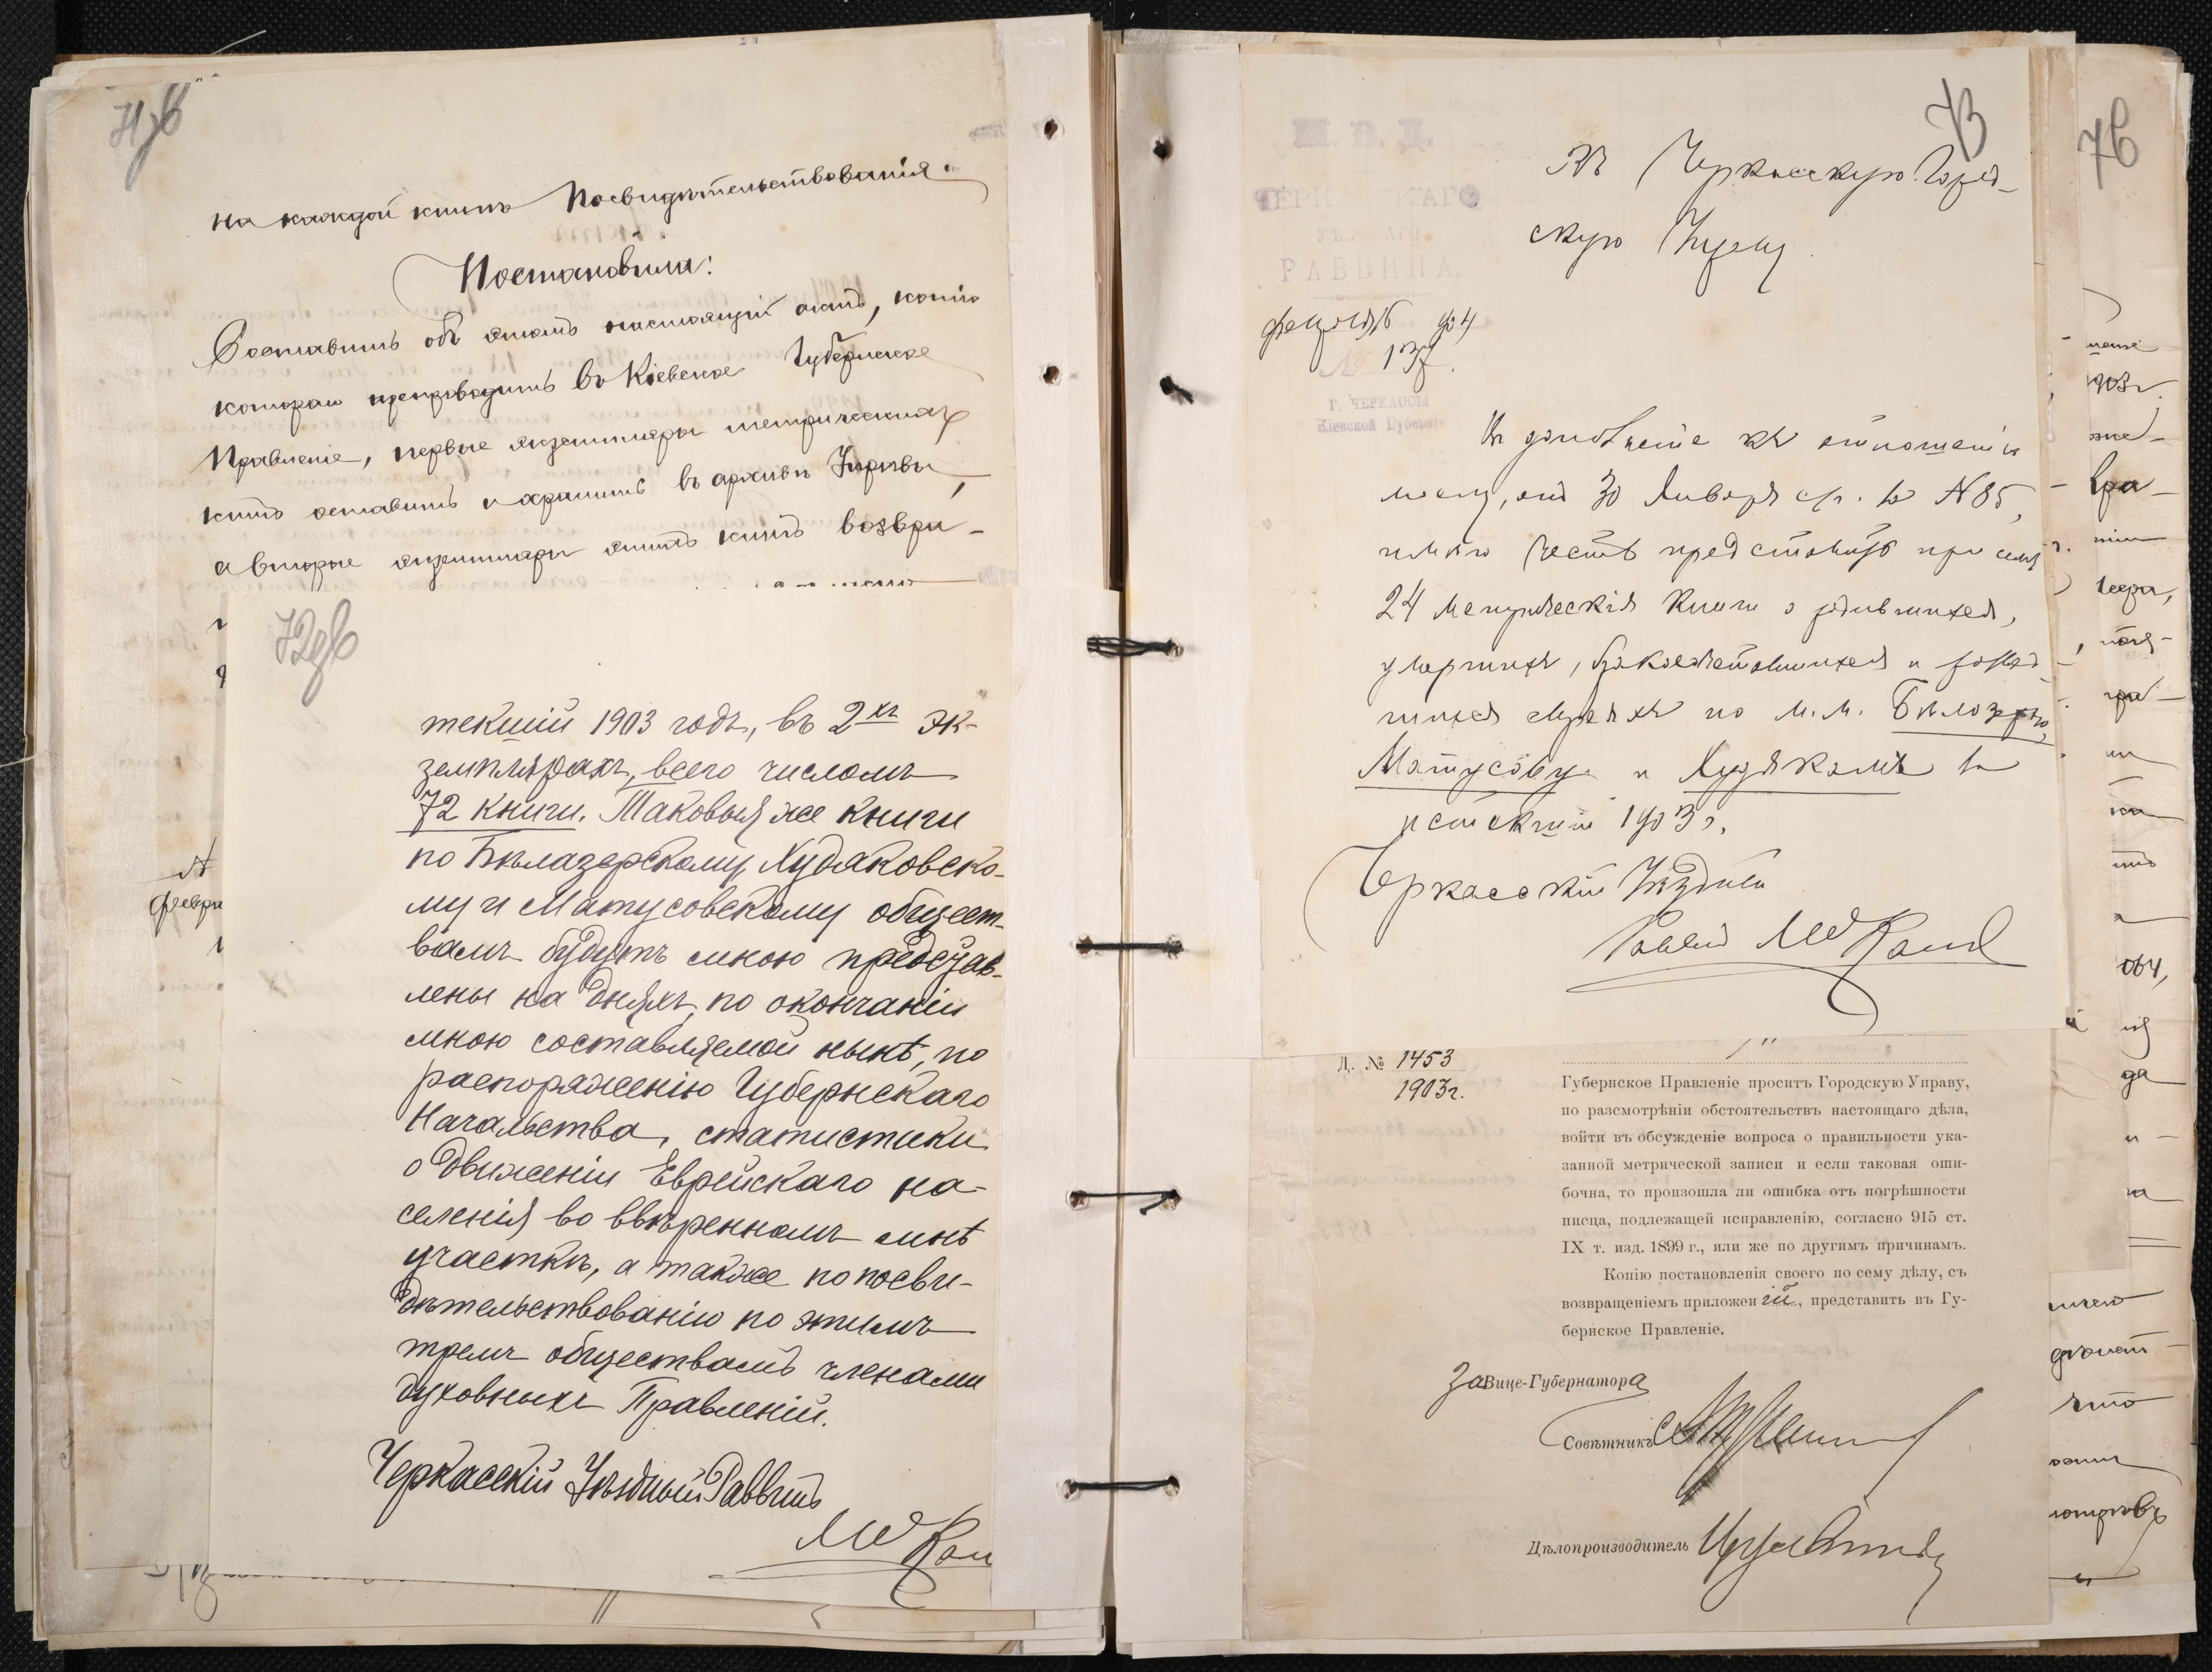 71об
на каждой книгѣ посвидѣтельствованія
Постановила:
Составить объ этомъ настоящій актъ, копію
котораго препроводить въ Кіевское Губернское
Правленіе, первые экземпляры метрическихъ
книгъ оставить и хранить въ архивѣ Управы,
а вторые экземпляры этихъ книгъ возвра-
72об
текшій 1903 годъ, въ 2хъ эк-
земплярахъ, всего числомъ
72 книги. Таковыя же книги
по Бѣлазерскому, Худяковско-
му и Матусовскому общест-
вамъ будутъ мною представ-
лены на дняхъ, по окончаніи
мною составляемой нынѣ, по
распоряженію Губернскаго
Начальства, статистики
о движеніи Еврейскаго на-
селенія во ввѣренномъ мнѣ
участкѣ, а также по посви-
дѣтельствованію по этимъ
тремъ обществамъ членами
духовныхъ Правленій.
Черкасскій Уѣздный Раввинъ
февра
73
Въ Черкасскую Город-
скую Управу
М. В. Д.
ЧЕРКАССКАГО
УѢЗДНАГО
РАВВИНА.
февраля 1904
№ 137
Г. ЧЕРКАССЫ
Кіевской Губерніи
Въ дополненіе къ отношенію
моему, отъ 30 Января с/г. за № 85,
имѣю честь представить при семъ
24 метрическія книги о родившихся,
умершихъ, бракосочетавшихся и развед-
шихся евреяхъ по м.м. Бѣлозерью,
Матусову и Худякамъ за
истекшій 1903 г.
Черкасскій Уѣздный
Раввинъ
Д. № 1453
1903г.
Губернское Правленіе проситъ Городскую Управу,
по разсмотрѣніи обстоятельствъ настоящаго дѣла,
войти въ обсужденіе вопроса о правильности ука-
занной метрической записи и если таковая оши-
бочна, то произошла ли ошибка отъ погрѣшности
писца, подлежащей исправленію, согласно 915 ст.
IX т. изд. 1899 г., или же по другимъ причинамъ.
Копію постановленія своего по сему дѣлу, съ
возвращеніемъ приложеній, представить въ Гу-
бернское Правленіе.
За Вице-Губернатора
Совѣтникъ
Дѣлопроизводитель
76
903г.
вра-
да
что